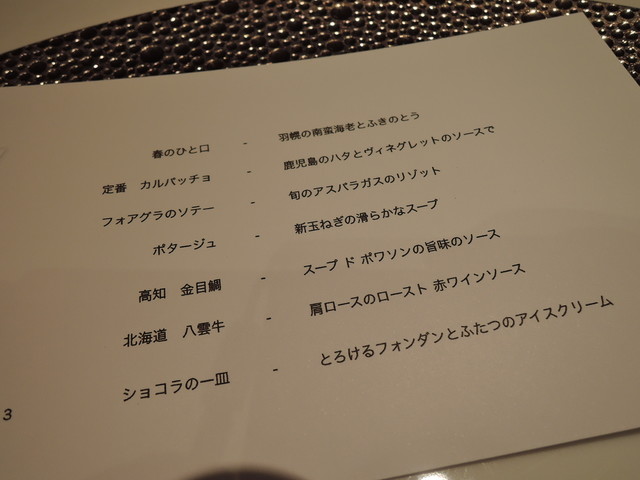 春のひと口 - 羽幌の南蛮海老とふきのとう
定番 カルパッチョ - 鹿児島のハタとヴィネグレットのソースで
フォアグラのソテー - 旬のアスパラガスのリゾット
ポタージュ - 新玉ねぎの滑らかなスープ
高知 金目鯛 - スープ ド ポワソンの旨味のソース
北海道 八雲牛 - 肩ロースのロースト 赤ワインソース
ショコラの一皿 - とろけるフォンダンとふたつのアイスクリーム
3